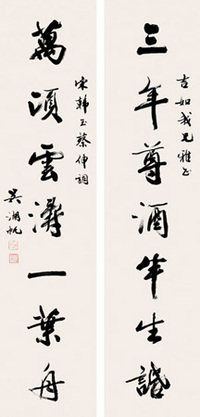 三年尊酒半生話
吉如我兄雅正
萬頃雲濤一葉舟
宋韓玉蔡伸調
吳湖帆